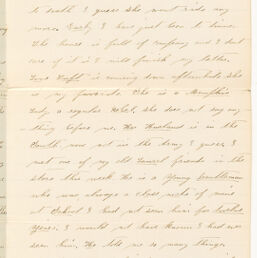 to death I guess she wont ride any
more. I have just been to dinner
The house is full of company and I dont
care if it is I will finish my letter.
is coming down afterwhile she
is my favorite. She is a Memphis
Lady a regular she does not say any
-thing before me. Her Husband is in the
South now not in the Army I guess. I
met one of my old friends in the
store this week He is a Young Gentleman
who was always a class mate of mine
at School I had not seen him for twelve
Years. I would not have known I had
seen him. He told me so many things